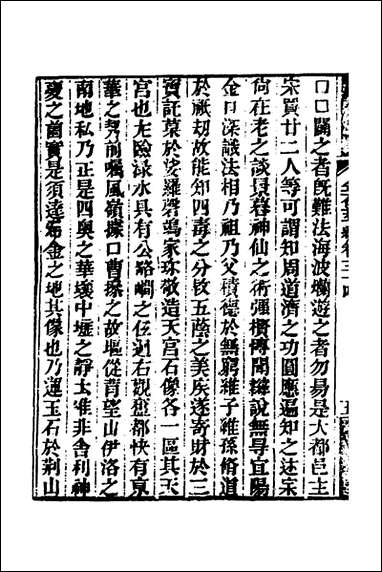 口口闢之者旣難法海波瀾遊之者勿易是大都邑主
宋買廿二人等可謂知周道濟之功圓應遍知之迹宋
尙在老之談長暮神仙之術彊橫傳聞辯說無尋宜陽
金口深識法相乃祖乃父積德於無窮維子維孫脩道
於厥劫故能知四毒之分枚五蔭之美疾遂寄財於三
寶託菓於娑羅磬竭家珎敬造天宮石像各一區其天
宮也左臨水具有公路㵎之迴右觀都快有京
華之勢前嘱風嶺據口曹操之故堰從背望山伊洛之
南地私乃正是四奧之華壤中壥之靜太唯非舍利神
之菌實是須達布金之地其像也乃運玉石於荆山